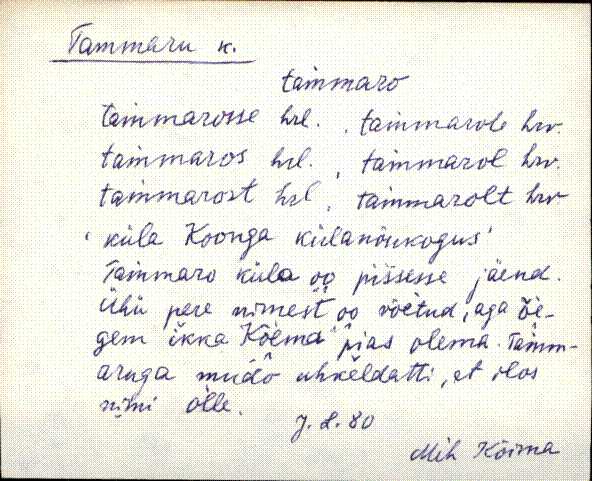 Tammaru k.
tammaro
tammarosse hrl. , tammarole hrv.
tammaros hrl. , tammarol hrv.
tammarost hrl , tammarolt hrv
'küla Koonga külanõukogus'
Tammaro küla oo pissesse jäend.
Ühü pere nimest oo võetud, aga õè-
gem ikka Kõèma pias olema. Tamm-
aruga mudo uhkeldatti, et ilos
nimi olle.
J. L. 80
Mih Kõima